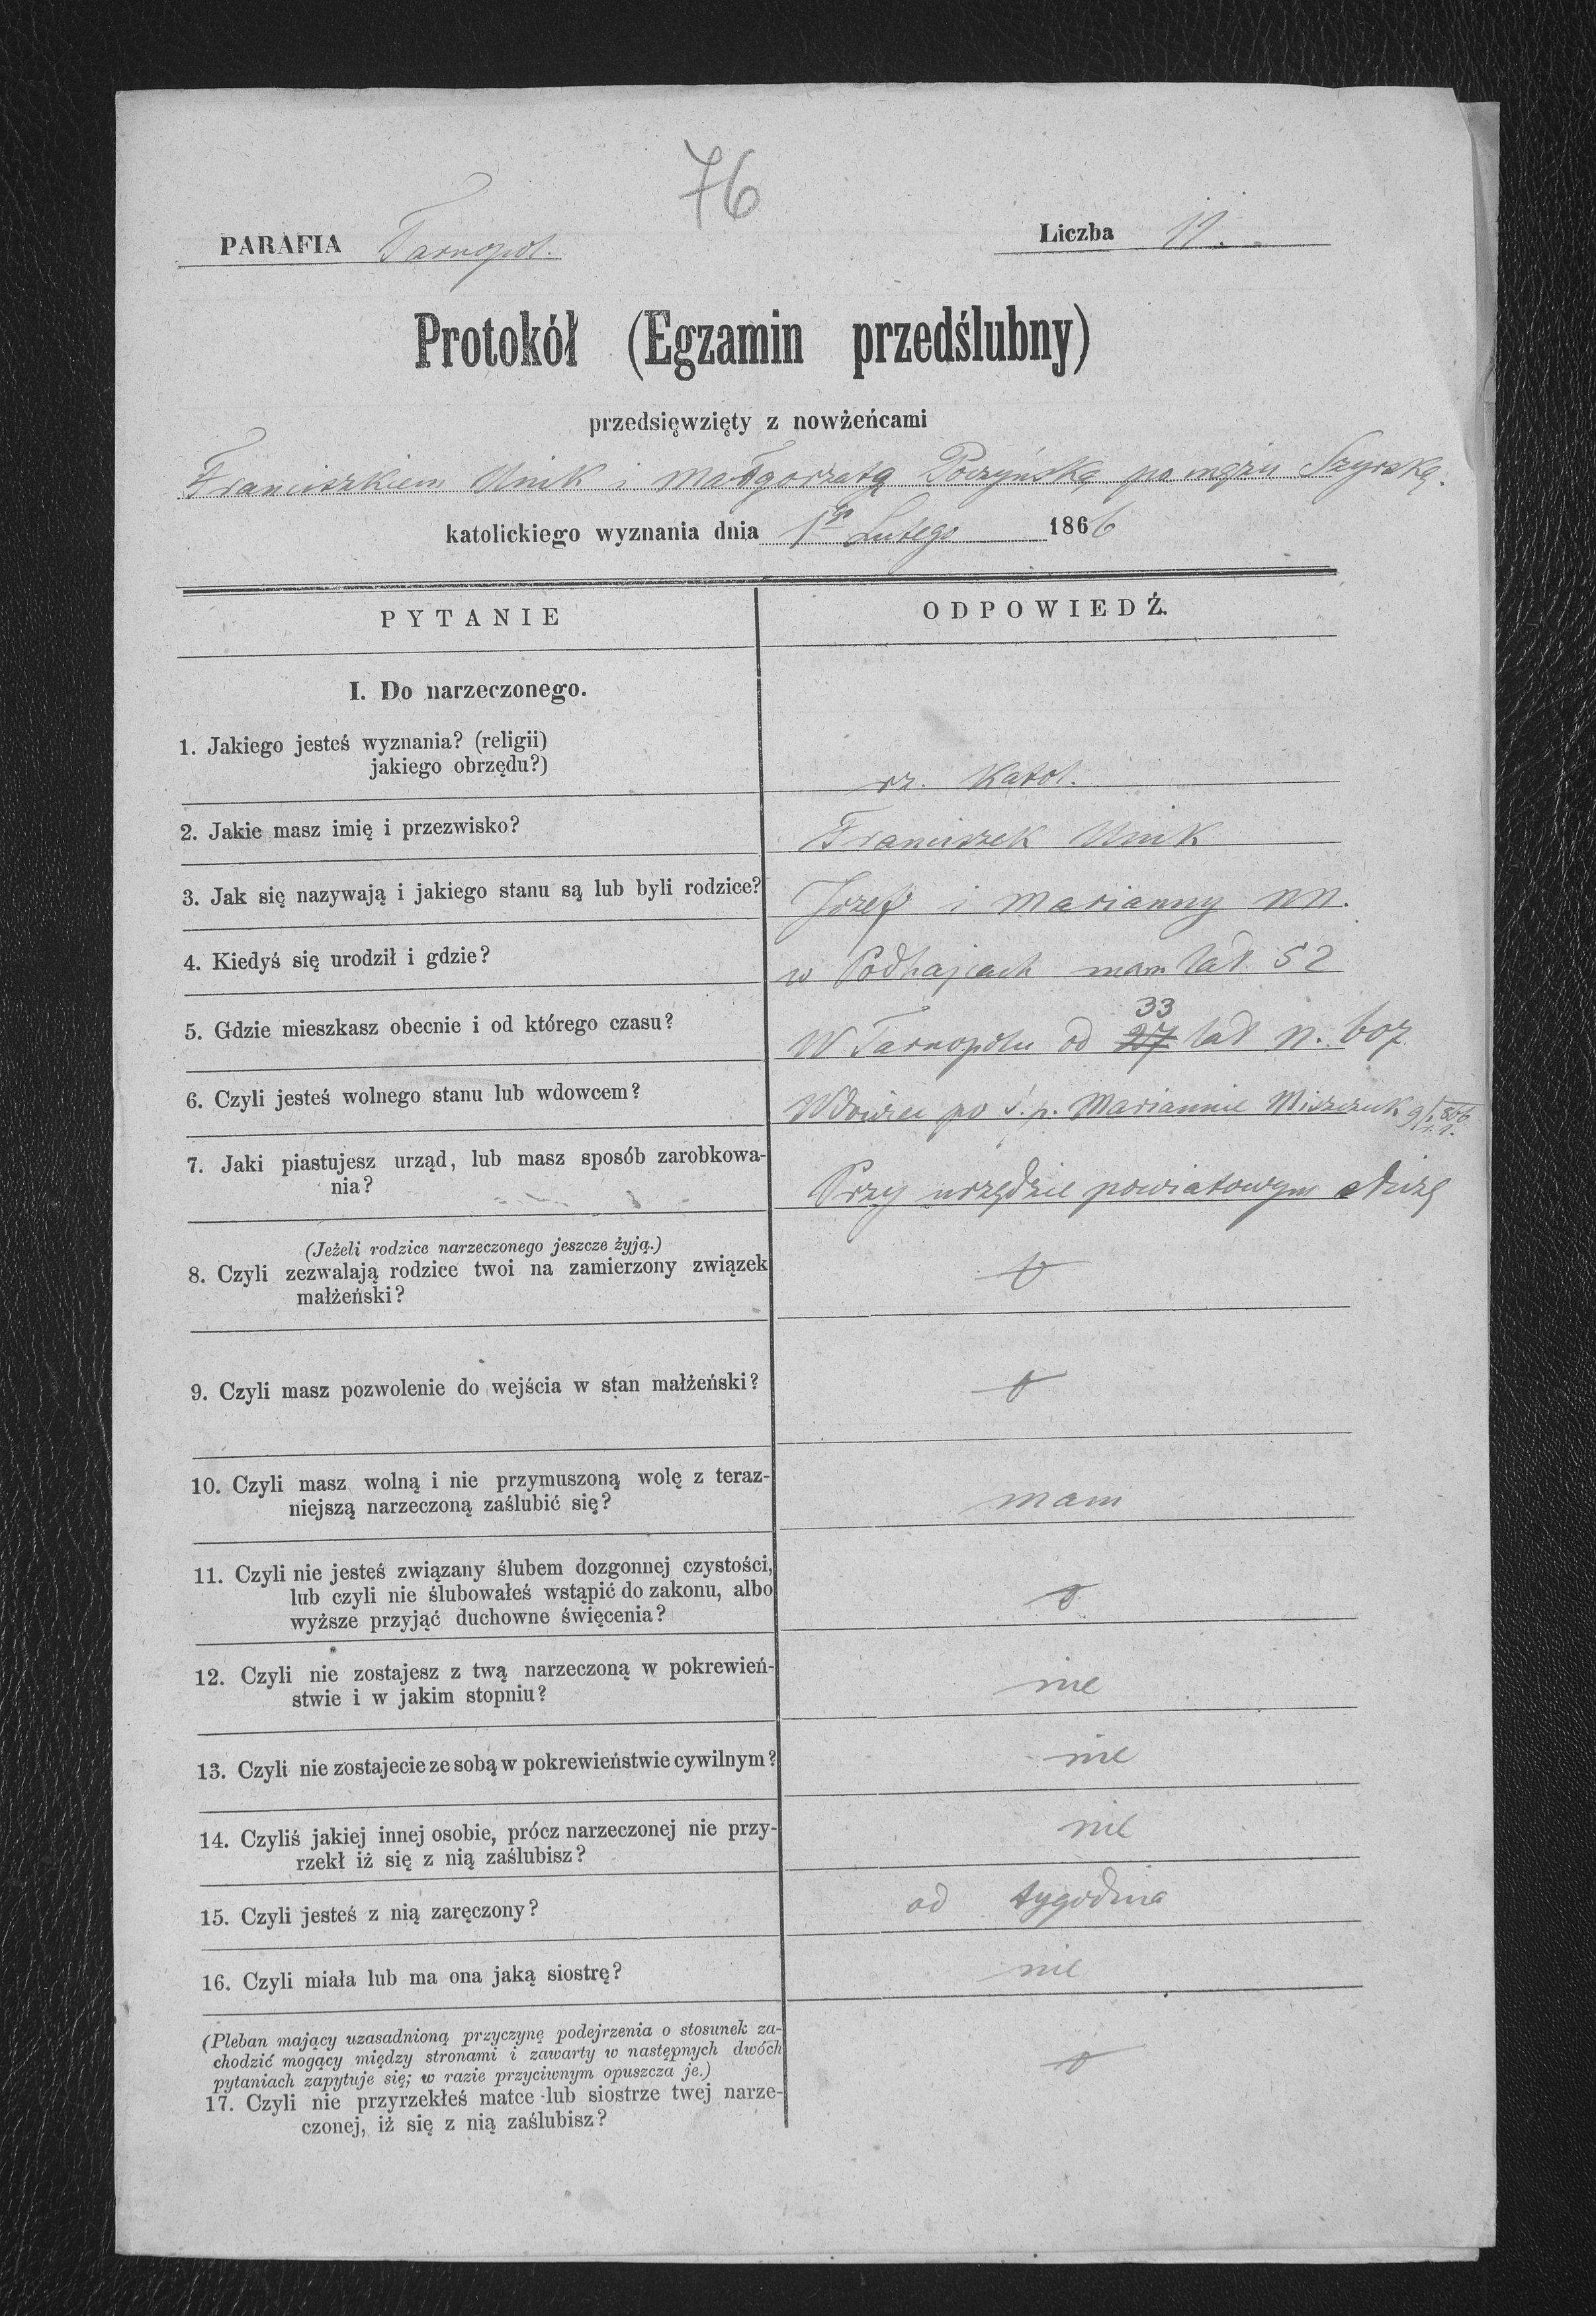 76
PARAFIA Tarnopol. Liczba 12.
Protokół (Egzamin przedślubny)
przedsięwzięty z nowżeńcami
Franciszkiem Unik i Małgorzatą po mężu
katolickiego wyznania dnia 1go Lutego 1866
PYTANIE ODPOWIEDŹ.
I. Do narzeczonego.
1. Jakiego jesteś wyznania? (religii)
jakiego obrzędu?)
rz. Katol.
2. Jakie masz imię i przezwisko? Franciszek Unik
3. Jak się nazywają i jakiego stanu są lub byli rodzice? Józef i Marianny NN.
4. Kiedyś się urodził i gdzie? w Podhajcach mam lat 52
33
5. Gdzie mieszkasz obecnie i od którego czasu? W Tarnopolu od 27 lat N. 607
6. Czyli jesteś wolnego stanu lub wdowcem? Wdowiec po ś. p. Mariannie
7. Jaki piastujesz urząd, lub masz sposób zarobkowa-
nia? Przy urzędzie powiatowym służę
(Jeżeli rodzice narzeczonego jeszcze żyją.)
8. Czyli zezwalają rodzice twoi na zamierzony związek
małżeński?
9. Czyli masz pozwolenie do wejścia w stan małżeński?
10. Czyli masz wolną i nie przymuszoną wolę z teraz-
niejszą narzeczoną zaślubić się? mam
11. Czyli nie jesteś związany ślubem dozgonnej czystości,
lub czyli nie ślubowałeś wstąpić do zakonu, albo
wyższe przyjąć duchowne święcenia?
12. Czyli nie zostajesz z twą narzeczoną w pokrewień-
stwie i w jakim stopniu? nie
13. Czyli nie zostajecie ze sobą w pokrewieństwie cywilnym? nie
14. Czyliś jakiej innej osobie, prócz narzeczonej nie przy-
rzekł iż się z nią zaślubisz? nie
15. Czyli jesteś z nią zaręczony? od tygodnia
16. Czyli miała lub ma ona jaką siostrę? nie
(Pleban mający uzasadnioną przyczynę podejrzenia o stosunek za-
chodzić mogący między stronami i zawarty w następnych dwóch
pytaniach zapytuje się; w razie przyciwnym opuszcza je.)
17. Czyli nie przyrzekłeś matce lub siostrze twej narze-
czonej, iż się z nią zaślubisz?